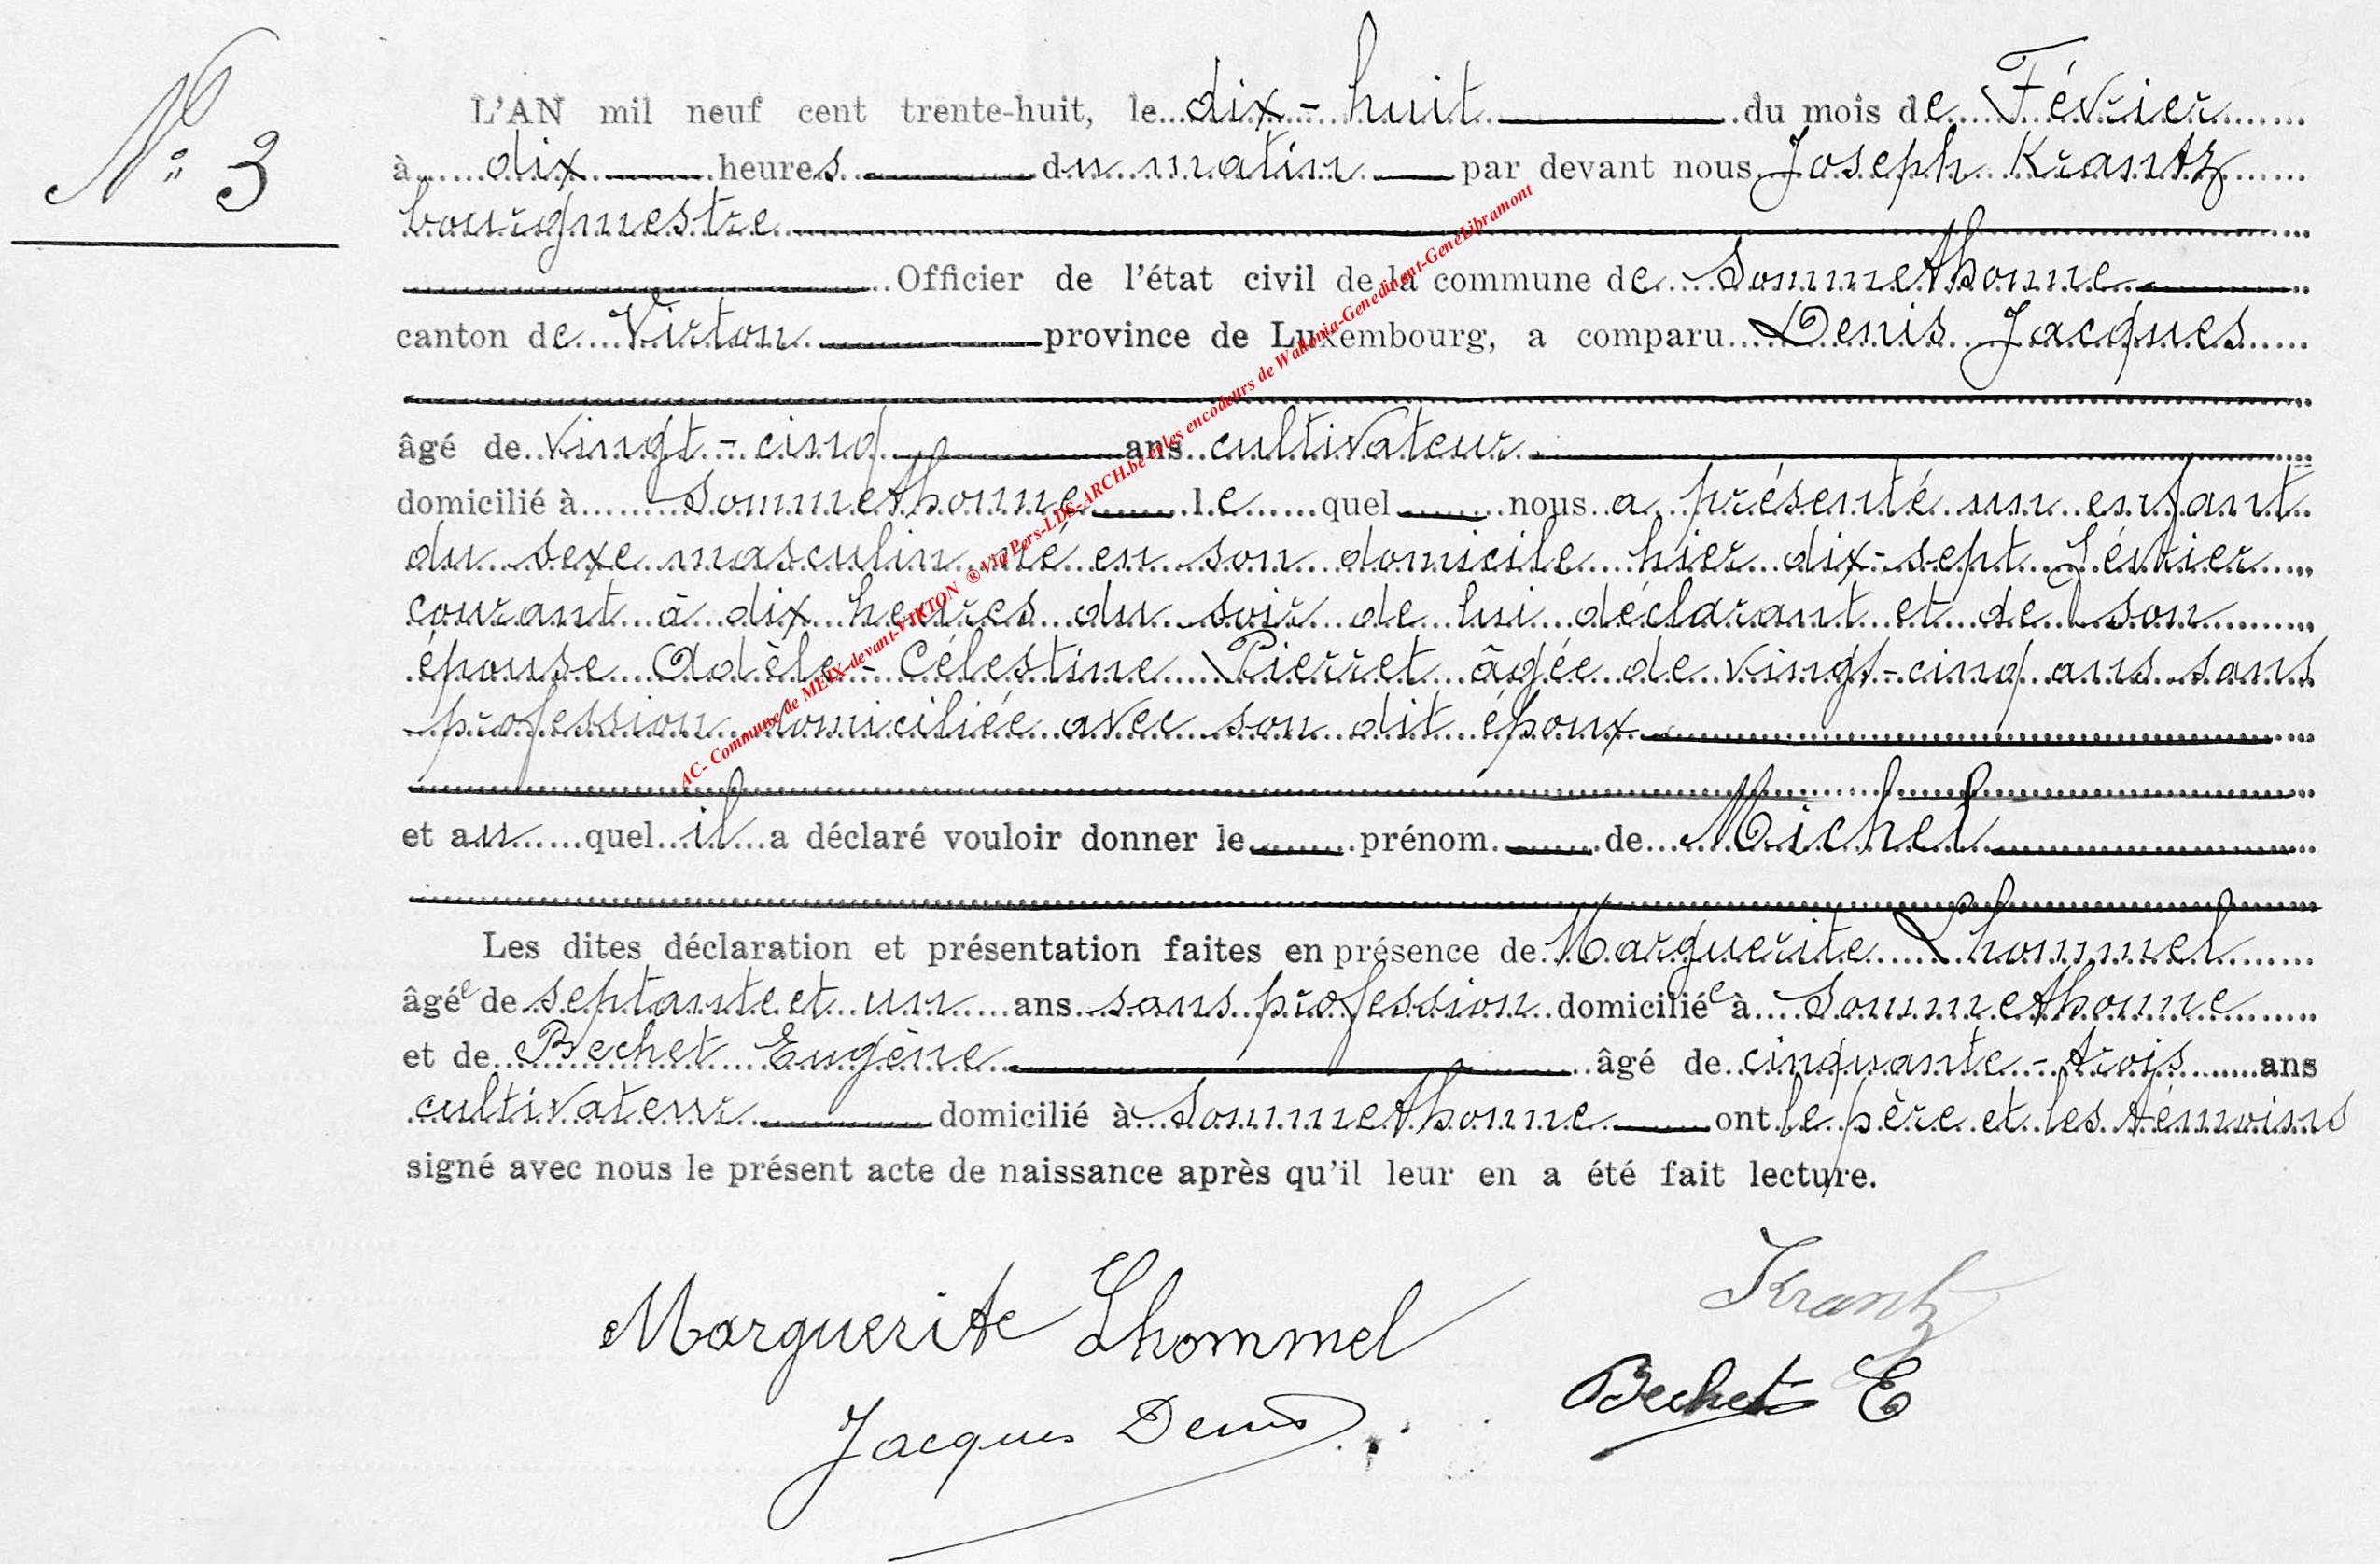 N° 3
L'AN mil neuf cent trente-huit, le dix-huit du mois de Février
à dix heures du matin par devant nous Joseph Krantz
bourgmestre
Officier de l'état civil de la commune de Sommethonne
canton de Virton province de Luxembourg, a comparu Denis Jacques
âgé de vingt-cinq ans cultivateur
domicilié à Sommethonne le quel nous a présenté un enfant
du sexe masculin né en son domicile hier dix-sept février
courant à dix heures du soir de lui déclarant et de son
épouse Adèle-Célestine Pierret âgée de vingt-cinq ans sans
profession domiciliée avec son dit époux
et au quel il a déclaré vouloir donner le prénom de Michel
Les dites déclaration et présentation faites en présence de Marguerite Lhommel
âgée de septante et un ans sans profession domiciliée à Sommethonne
et de Bechet Eugène âgé de cinquante-trois ans
cultivateur domicilié à Sommethonne ont le père et les témoins
signé avec nous le présent acte de naissance après qu'il leur en a été fait lecture.
Marguerite Lhommel Krantz
Jacques Denis Bechet E
AC- Commune de MEIX-devant-VIRTON ® Via Pers-LDS-ARCH.be et les encodeurs de Wallonia-Genedinant-GeneLibramont